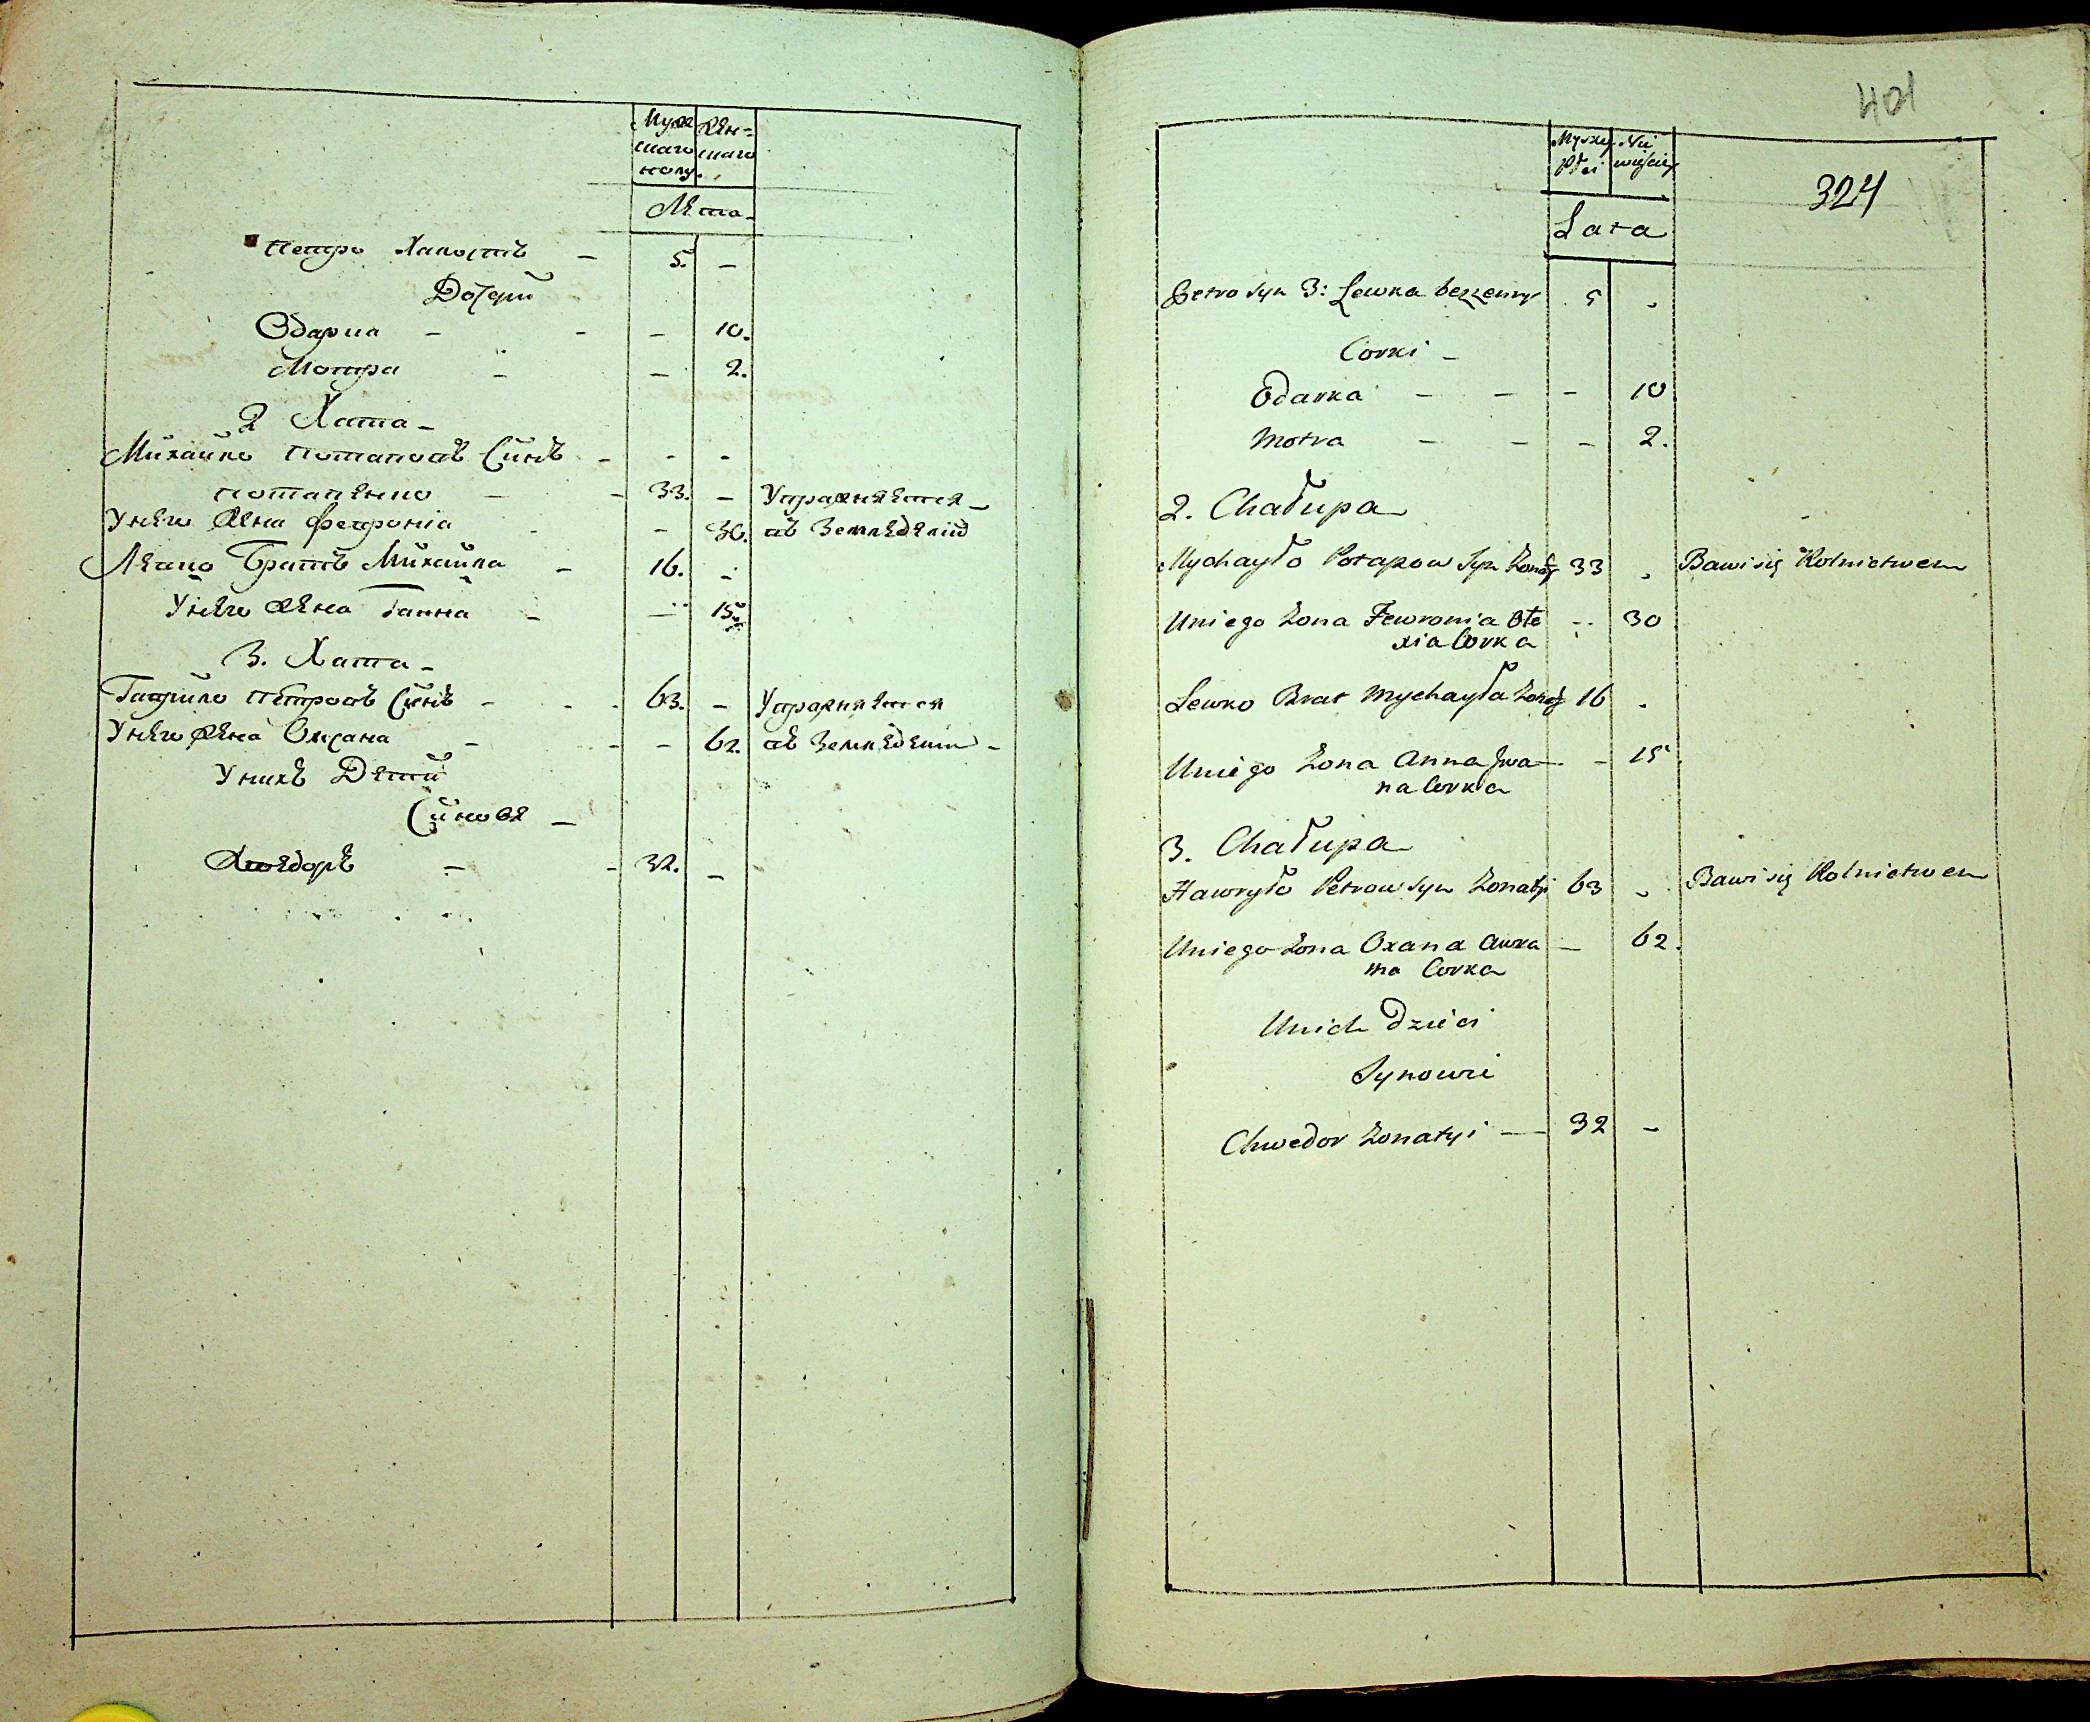 Муже Жен=
скаго скаго
полу.
Лета.
Петро Холостъ — 5. —
Дочери
Одарка — — — 10.
Мотра — — 2.
2 Хата —
Михайло Потаповъ Синъ — - -
Потапенко — — 33. — Упражняется —
Унего Жена Феврониа - — 30. въ Земледелии
Левко Братъ Михайла — 16. -
Унего Жена Ганна — — 15.
3. Хата —
Гаврило Петровъ Синъ - - - 63. — Упражняется
Унего Жена Оксана — - — 62. въ Земледелии —
Унихъ Дети
Синовя —
Хведоръ — - 32. —
401
Męzkiey Nie
Płci wieściey
324
Lata
Petro syn 3: Lewka bezzenny 5 -
Corki —
Odarka — — — 10
Motra — — — 2.
2. Chałupa
Mychayło Potapow Syn Żonaty 33 - Bawi się Rolnictwem
Uniego Żona Fewronia Ole - 30
xia Corka
Lewko Brat Mychayła Żonaty 16 -
Uniego Żona Anna Iwa — - 15
na Corka
3. Chałupa
Hawryło Petrow Syn Żonatyi 63 - Bawi się Rolnictwem
Uniego Żona Oxana — 62.
ma Corka
Unich Dzieci
Synowie
Chwedor Żonatyi — 32 —